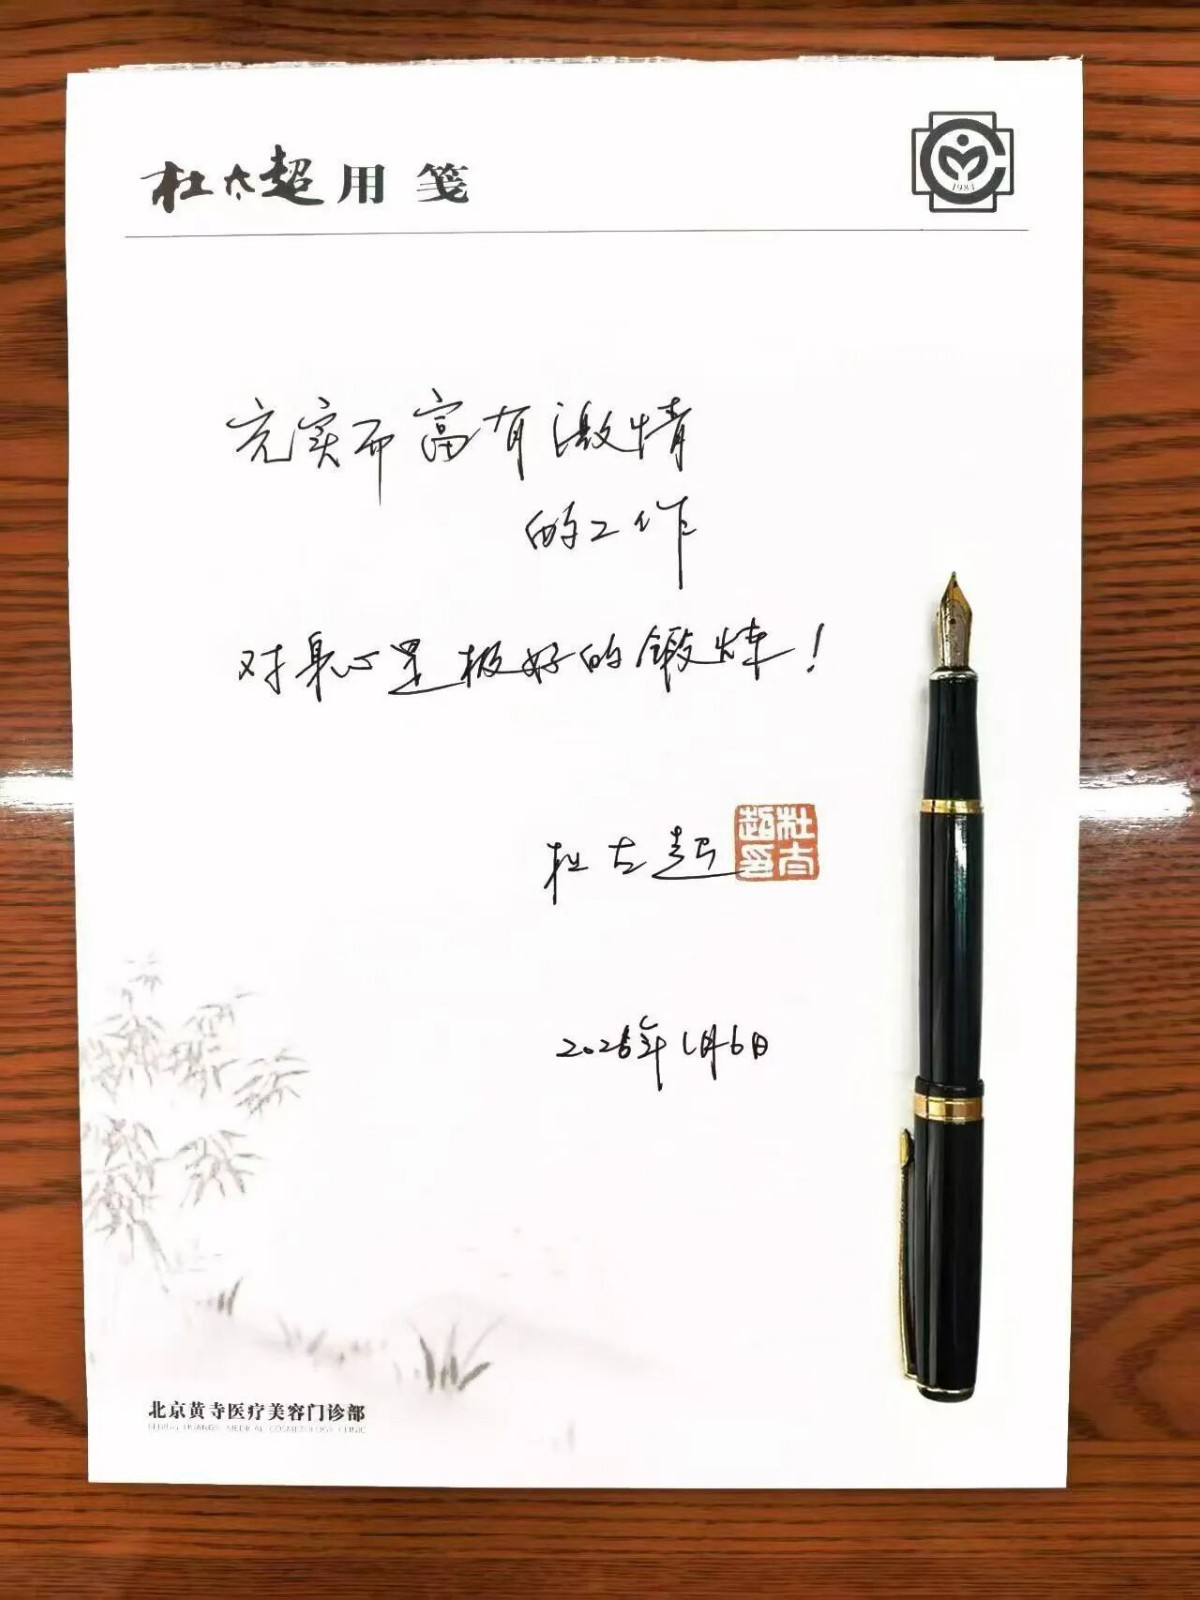 杜太超用笺
1984
充实而富有激情
的工作
对身心是极好的锻炼！
杜太超
杜太超印
1月6日
北京黄寺医疗美容门诊部
BEIJING HUANGSI MEDICAL COSMETOLOGY CLINIC